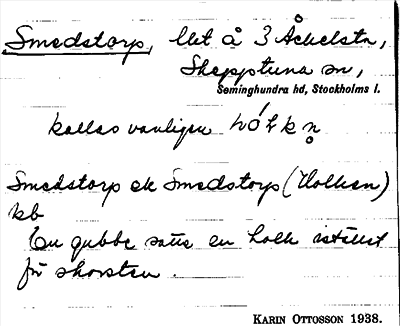 Smedstorp, lht å 3 Åshelsta,
Skepptuna sn,
Seminghundra hd, Stockholms l.
kallas vanligen
Smedstorp ek Smedstorp (Holken)
kb
En gubbe satte en holk istället
för skorsten.
KARIN OTTOSSON 1938.